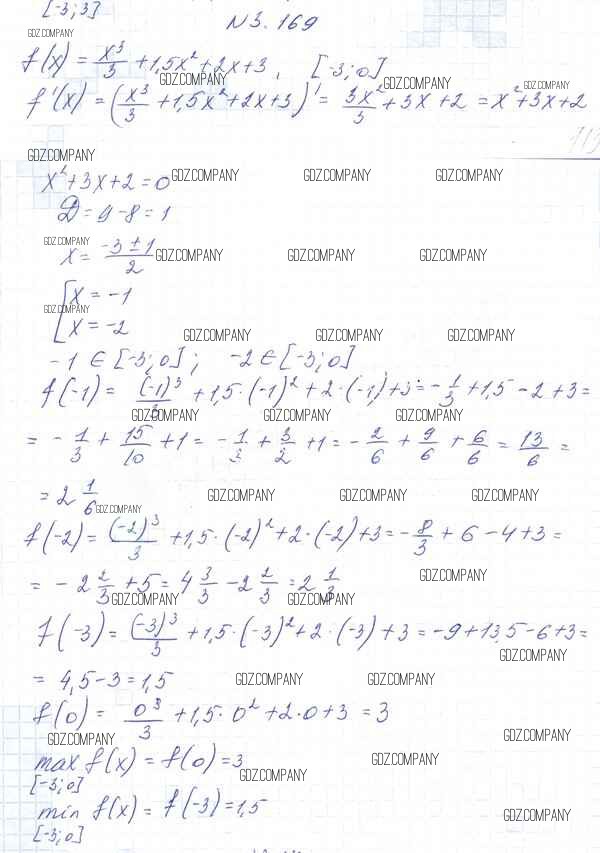 [-3;3]
N3.169
GDZ.COMPANY
f(x) = x³/3 + 1,5x² + 2x + 3, [-3;0]
GDZ.COMPANY GDZ.COMPANY GDZ.COMPANY
f'(x) = (x³/3 + 1,5x² + 2x + 3)' = 3x²/3 + 3x + 2 = x² + 3x + 2
GDZ.COMPANY
x² + 3x + 2 = 0 GDZ.COMPANY GDZ.COMPANY GDZ.COMPANY
D = 9 - 8 = 1
GDZ.COMPANY
x = (-3 ± 1)/2 GDZ.COMPANY GDZ.COMPANY GDZ.COMPANY
[x = -1
GDZ.COMPANY
[x = -2
GDZ.COMPANY GDZ.COMPANY GDZ.COMPANY
-1 ∈ [-3;0]; -2 ∈ [-3;0]
f(-1) = (-1)³/3 + 1,5·(-1)² + 2·(-1) + 3 = -1/3 + 1,5 - 2 + 3 =
GDZ.COMPANY GDZ.COMPANY GDZ.COMPANY
= -1/3 + 15/10 + 1 = -1/3 + 3/2 + 1 = -2/6 + 9/6 + 6/6 = 13/6 =
= 2 1/6 GDZ.COMPANY GDZ.COMPANY GDZ.COMPANY
GDZ.COMPANY
f(-2) = (-2)³/3 + 1,5·(-2)² + 2·(-2) + 3 = -8/3 + 6 - 4 + 3 =
GDZ.COMPANY
= -2 2/3 + 5 = 4 3/3 - 2 2/3 = 2 1/3
GDZ.COMPANY GDZ.COMPANY
f(-3) = (-3)³/3 + 1,5·(-3)² + 2·(-3) + 3 = -9 + 13,5 - 6 + 3 =
GDZ.COMPANY
= 4,5 - 3 = 1,5 GDZ.COMPANY GDZ.COMPANY
f(0) = 0³/3 + 1,5·0² + 2·0 + 3 = 3
GDZ.COMPANY GDZ.COMPANY
max f(x) = f(0) = 3 GDZ.COMPANY
[-3;0] GDZ.COMPANY
min f(x) = f(-3) = 1,5 GDZ.COMPANY
[-3;0]